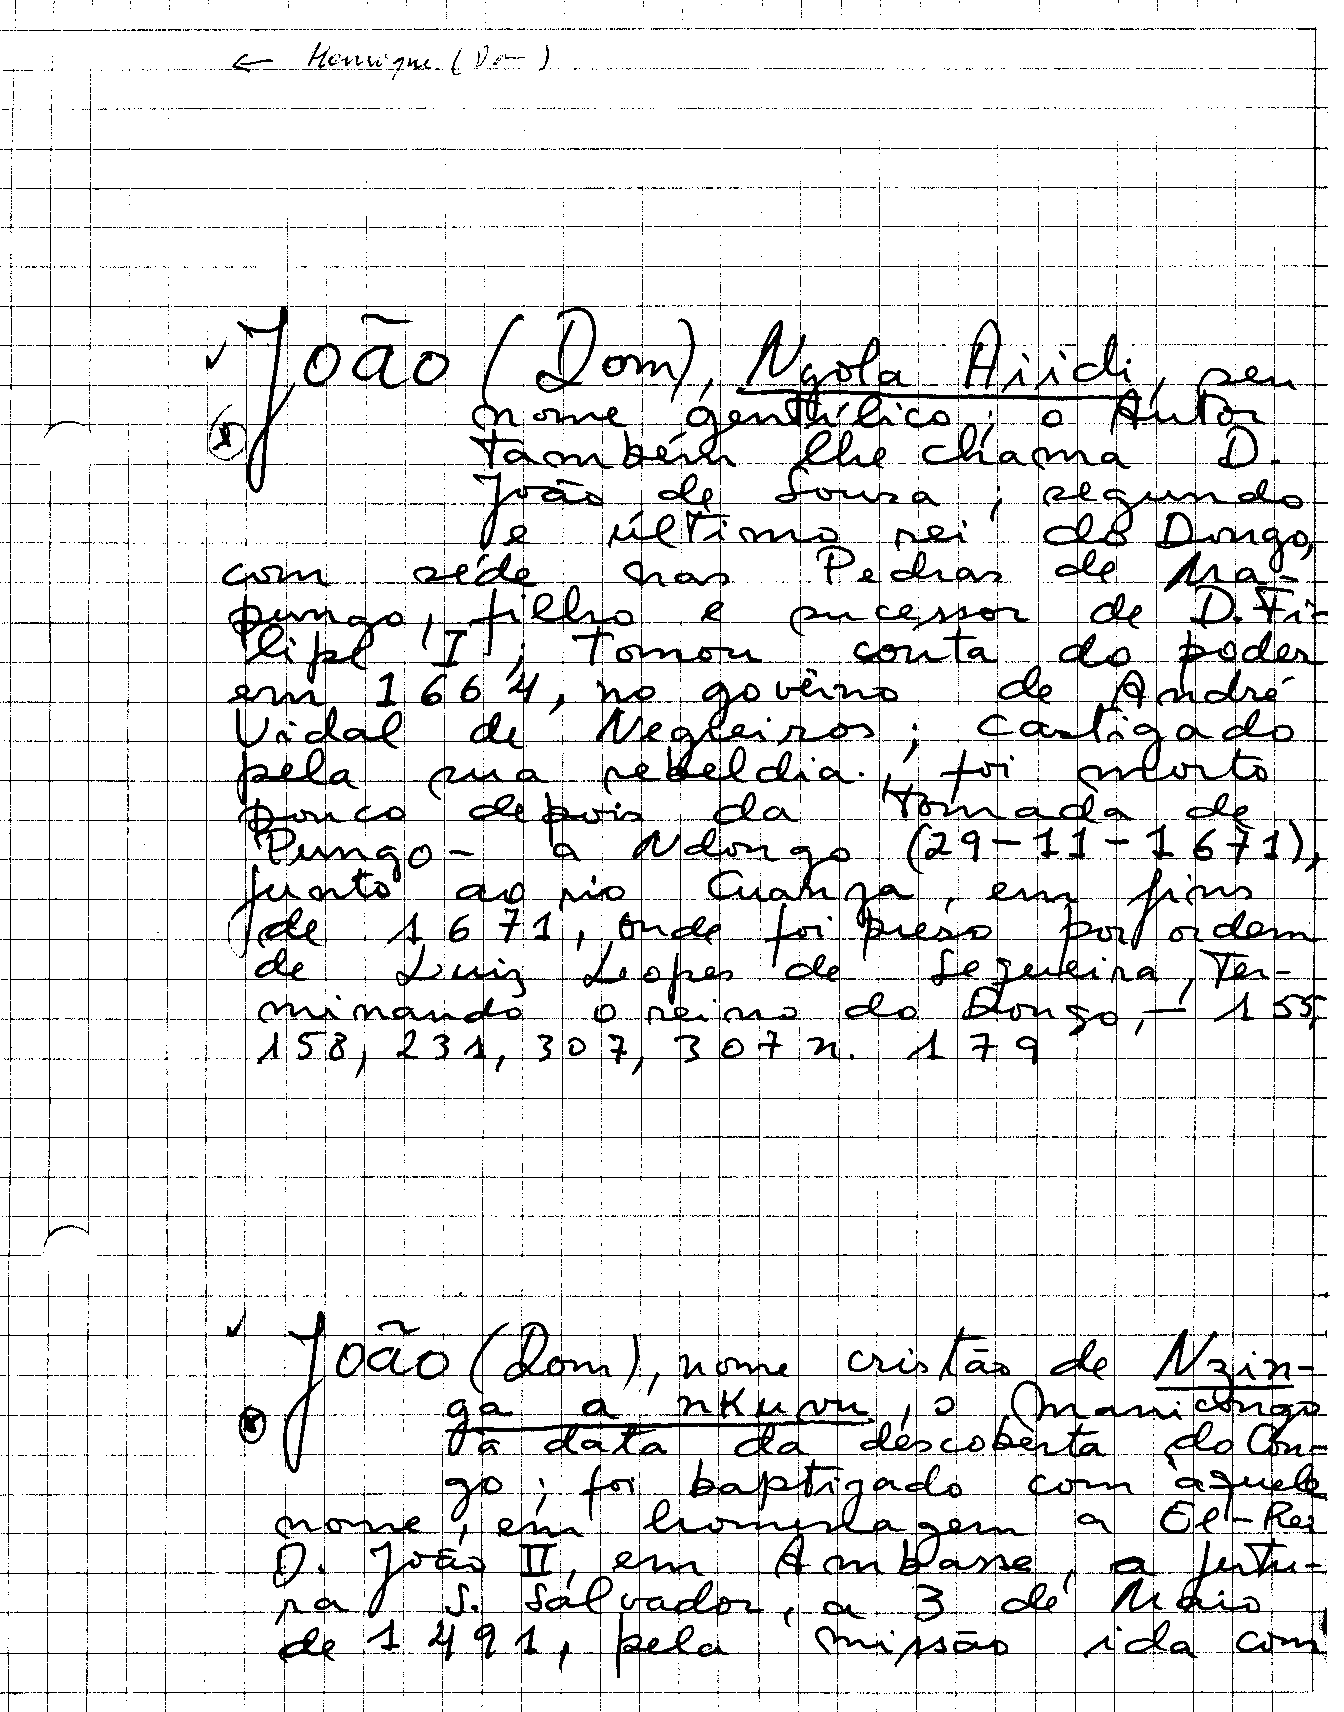 ← Henrique (Do-)
João (Dom), Ngola Aiidi, seu
nome gentílico; o Autor
também lhe chama D.
João de Souza; segundo
e último rei do Dongo,
com séde nas Pedras de Ma-
pungo, filho e sucessor de D. Fi-
lipe I; tomou conta do poder
em 1664, no govêrno de André
Vidal de Negreiros; castigado
pela sua rebeldia, foi morto
pouco depois da tomada de
Pungo-a Ndongo (29-11-1671),
junto ao rio Cuanza, em fins
de 1671, onde foi preso por ordem
de Luiz Lopes de Sequeira, ter-
minando o reino do Dongo, - 155,
158, 231, 307, 307 n. 179
João (Dom), nome cristão de Nzin-
ga a nKuvu, o Manicongo
à data da descoberta do Con-
go; foi baptizado com aquele
nome, em homenagem a El-Rei
D. João II, em Ambasse, a futu-
ra S. Salvador, a 3 de Maio
de 1491, pela missão ida com